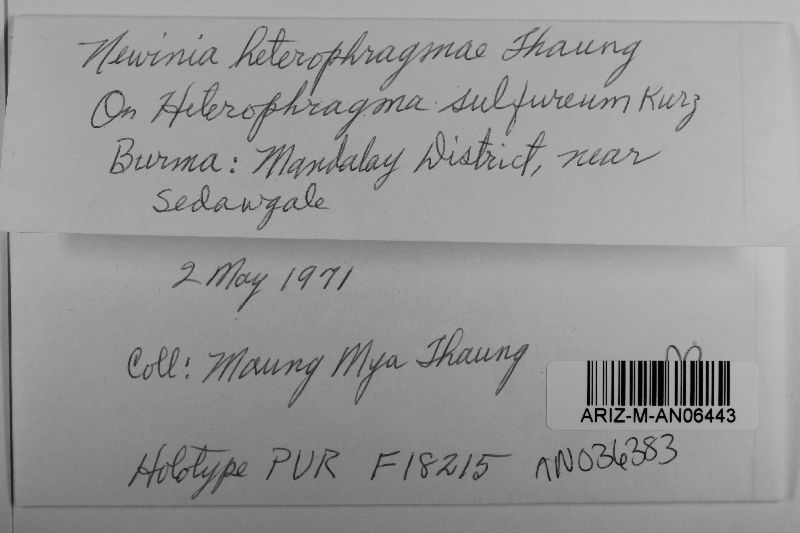 Newinia heterophragmae Thaung
On Heterophragma sulfureum Kurz
Burma: Mandalay District, near
Sedawgale
2 May 1971
Coll: Maung Mya Thaung
ARIZ-M-AN06443
Holotype PUR F18215 AN036383